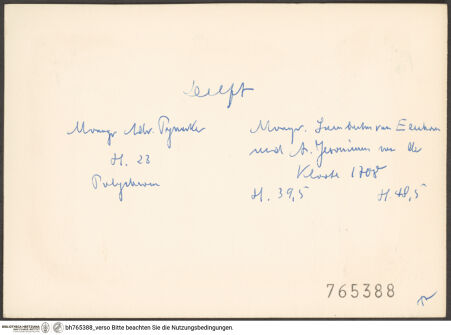 Delft
Monogr. Adr. Pynacker
H. 23
Polychrom
Monogr. Lambertus van Eenhorn
und A. Jeronimus van der
Kloote 1708
H. 39,5 H. 48,5
765388
BIBLIOTHECA HERTZIANA
bh765388_verso Bitte beachten Sie die Nutzungsbedingungen.